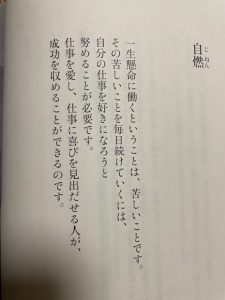 自燃
じねん
一生懸命に働くということは、苦しいことです。
その苦しいことを毎日続けていくには、
自分の仕事を好きになろうと
努めることが必要です。
仕事を愛し、仕事に喜びを見出だせる人が、
成功を収めることができるのです。